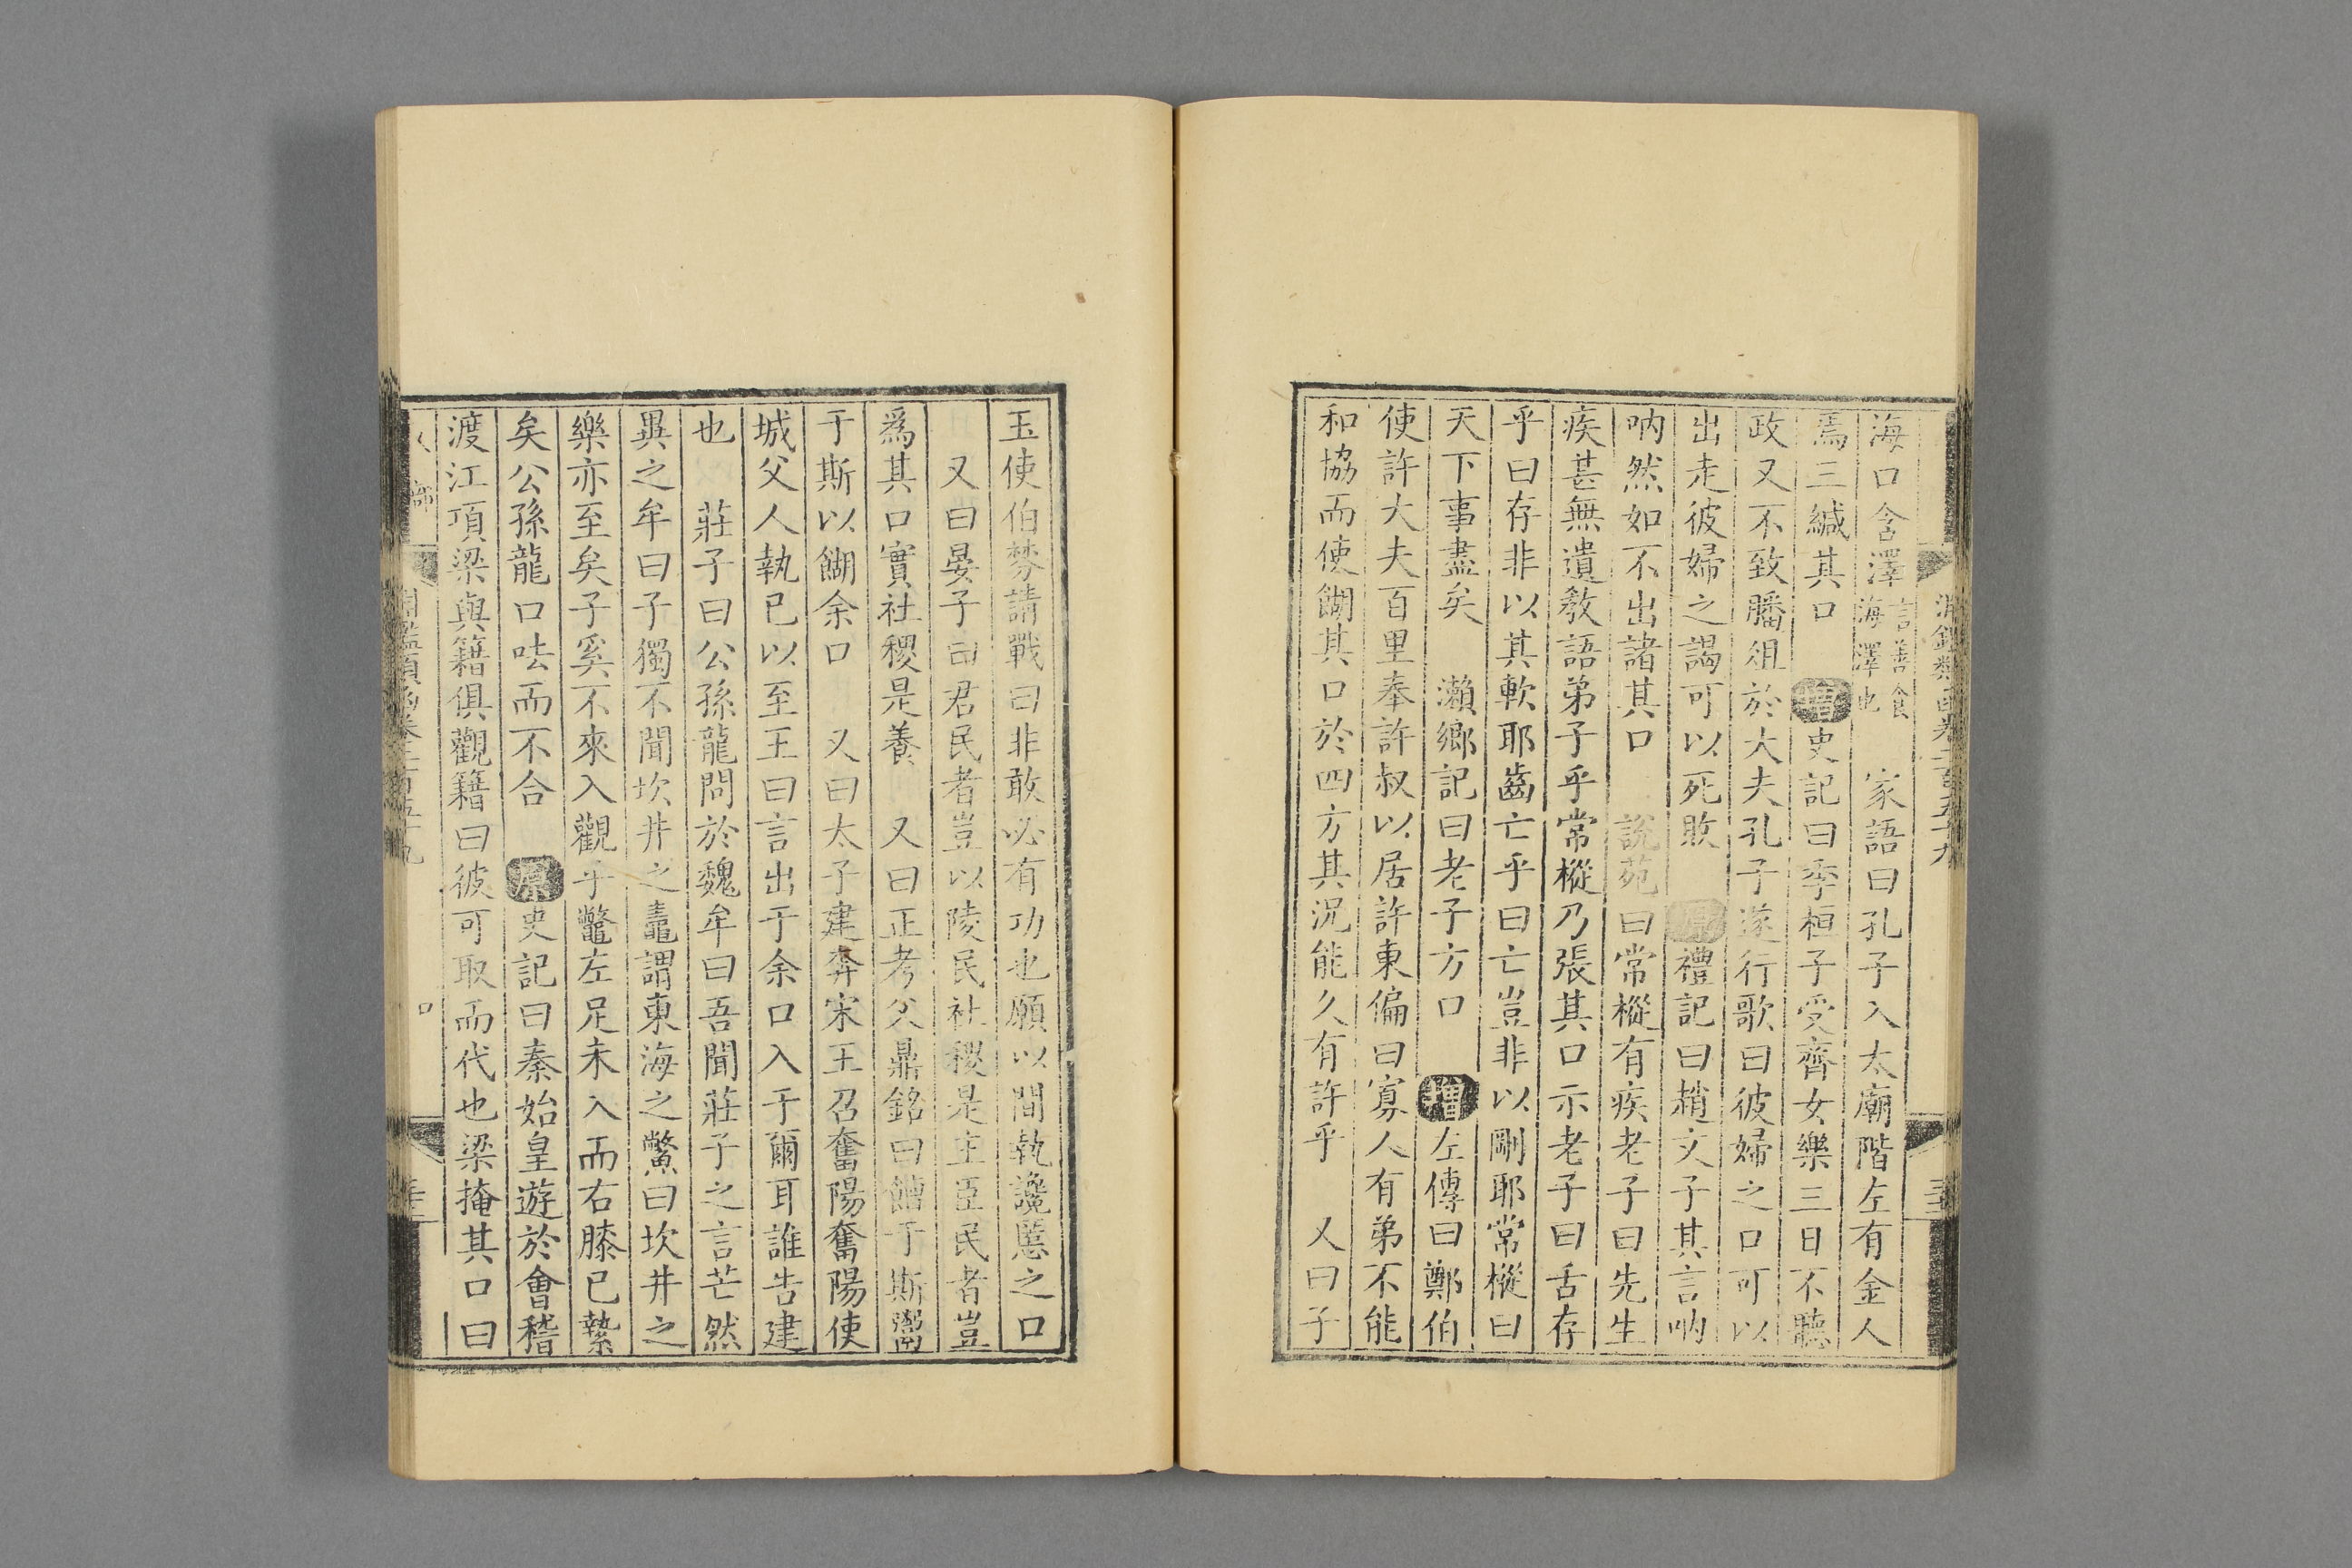 海口含澤言善食海澤也 家語曰孔子入太廟階左有金人
焉三緘其口 增史記曰季桓子受齊女樂三日不聽
政又不致膰俎於大夫孔子遂行歌曰彼婦之口可以
出走彼婦之謁可以死敗 原禮記曰趙文子其言吶
吶然如不出諸其口 說苑曰常樅有疾老子曰先生
疾甚無遺教語弟子乎常樅乃張其口示老子曰舌存
乎曰存非以其軟耶齒亡乎曰亡豈非以剛耶常樅曰
天下事盡矣 瀨鄉記曰老子方口 增左傳曰鄭伯
使許大夫百里奉許叔以居許東偏曰寡人有弟不能
和協而使餬其口於四方其況能久有許乎 又曰子
玉使伯棼請戰曰非敢必有功也願以間執讒慝之口
又曰晏子曰君民者豈以陵民社稷是主臣民者豈
爲其口實社稷是養 又曰正考父鼎銘曰饘于斯鬻
于斯以餬余口 又曰太子建奔宋王召奮陽奮陽使
城父人執已以至王曰言出于余口入于爾耳誰告建
也 莊子曰公孫龍問於魏牟曰吾聞莊子之言茫然
異之牟曰子獨不聞坎井之鼃謂東海之鱉曰坎井之
樂亦至矣子奚不來入觀乎鼈左足未入而右膝已縶
矣公孫龍口呿而不合 原史記曰秦始皇遊於會稽
渡江項梁與籍俱觀籍曰彼可取而代也梁掩其口曰
部
淵鑑類函卷二百五十九
口